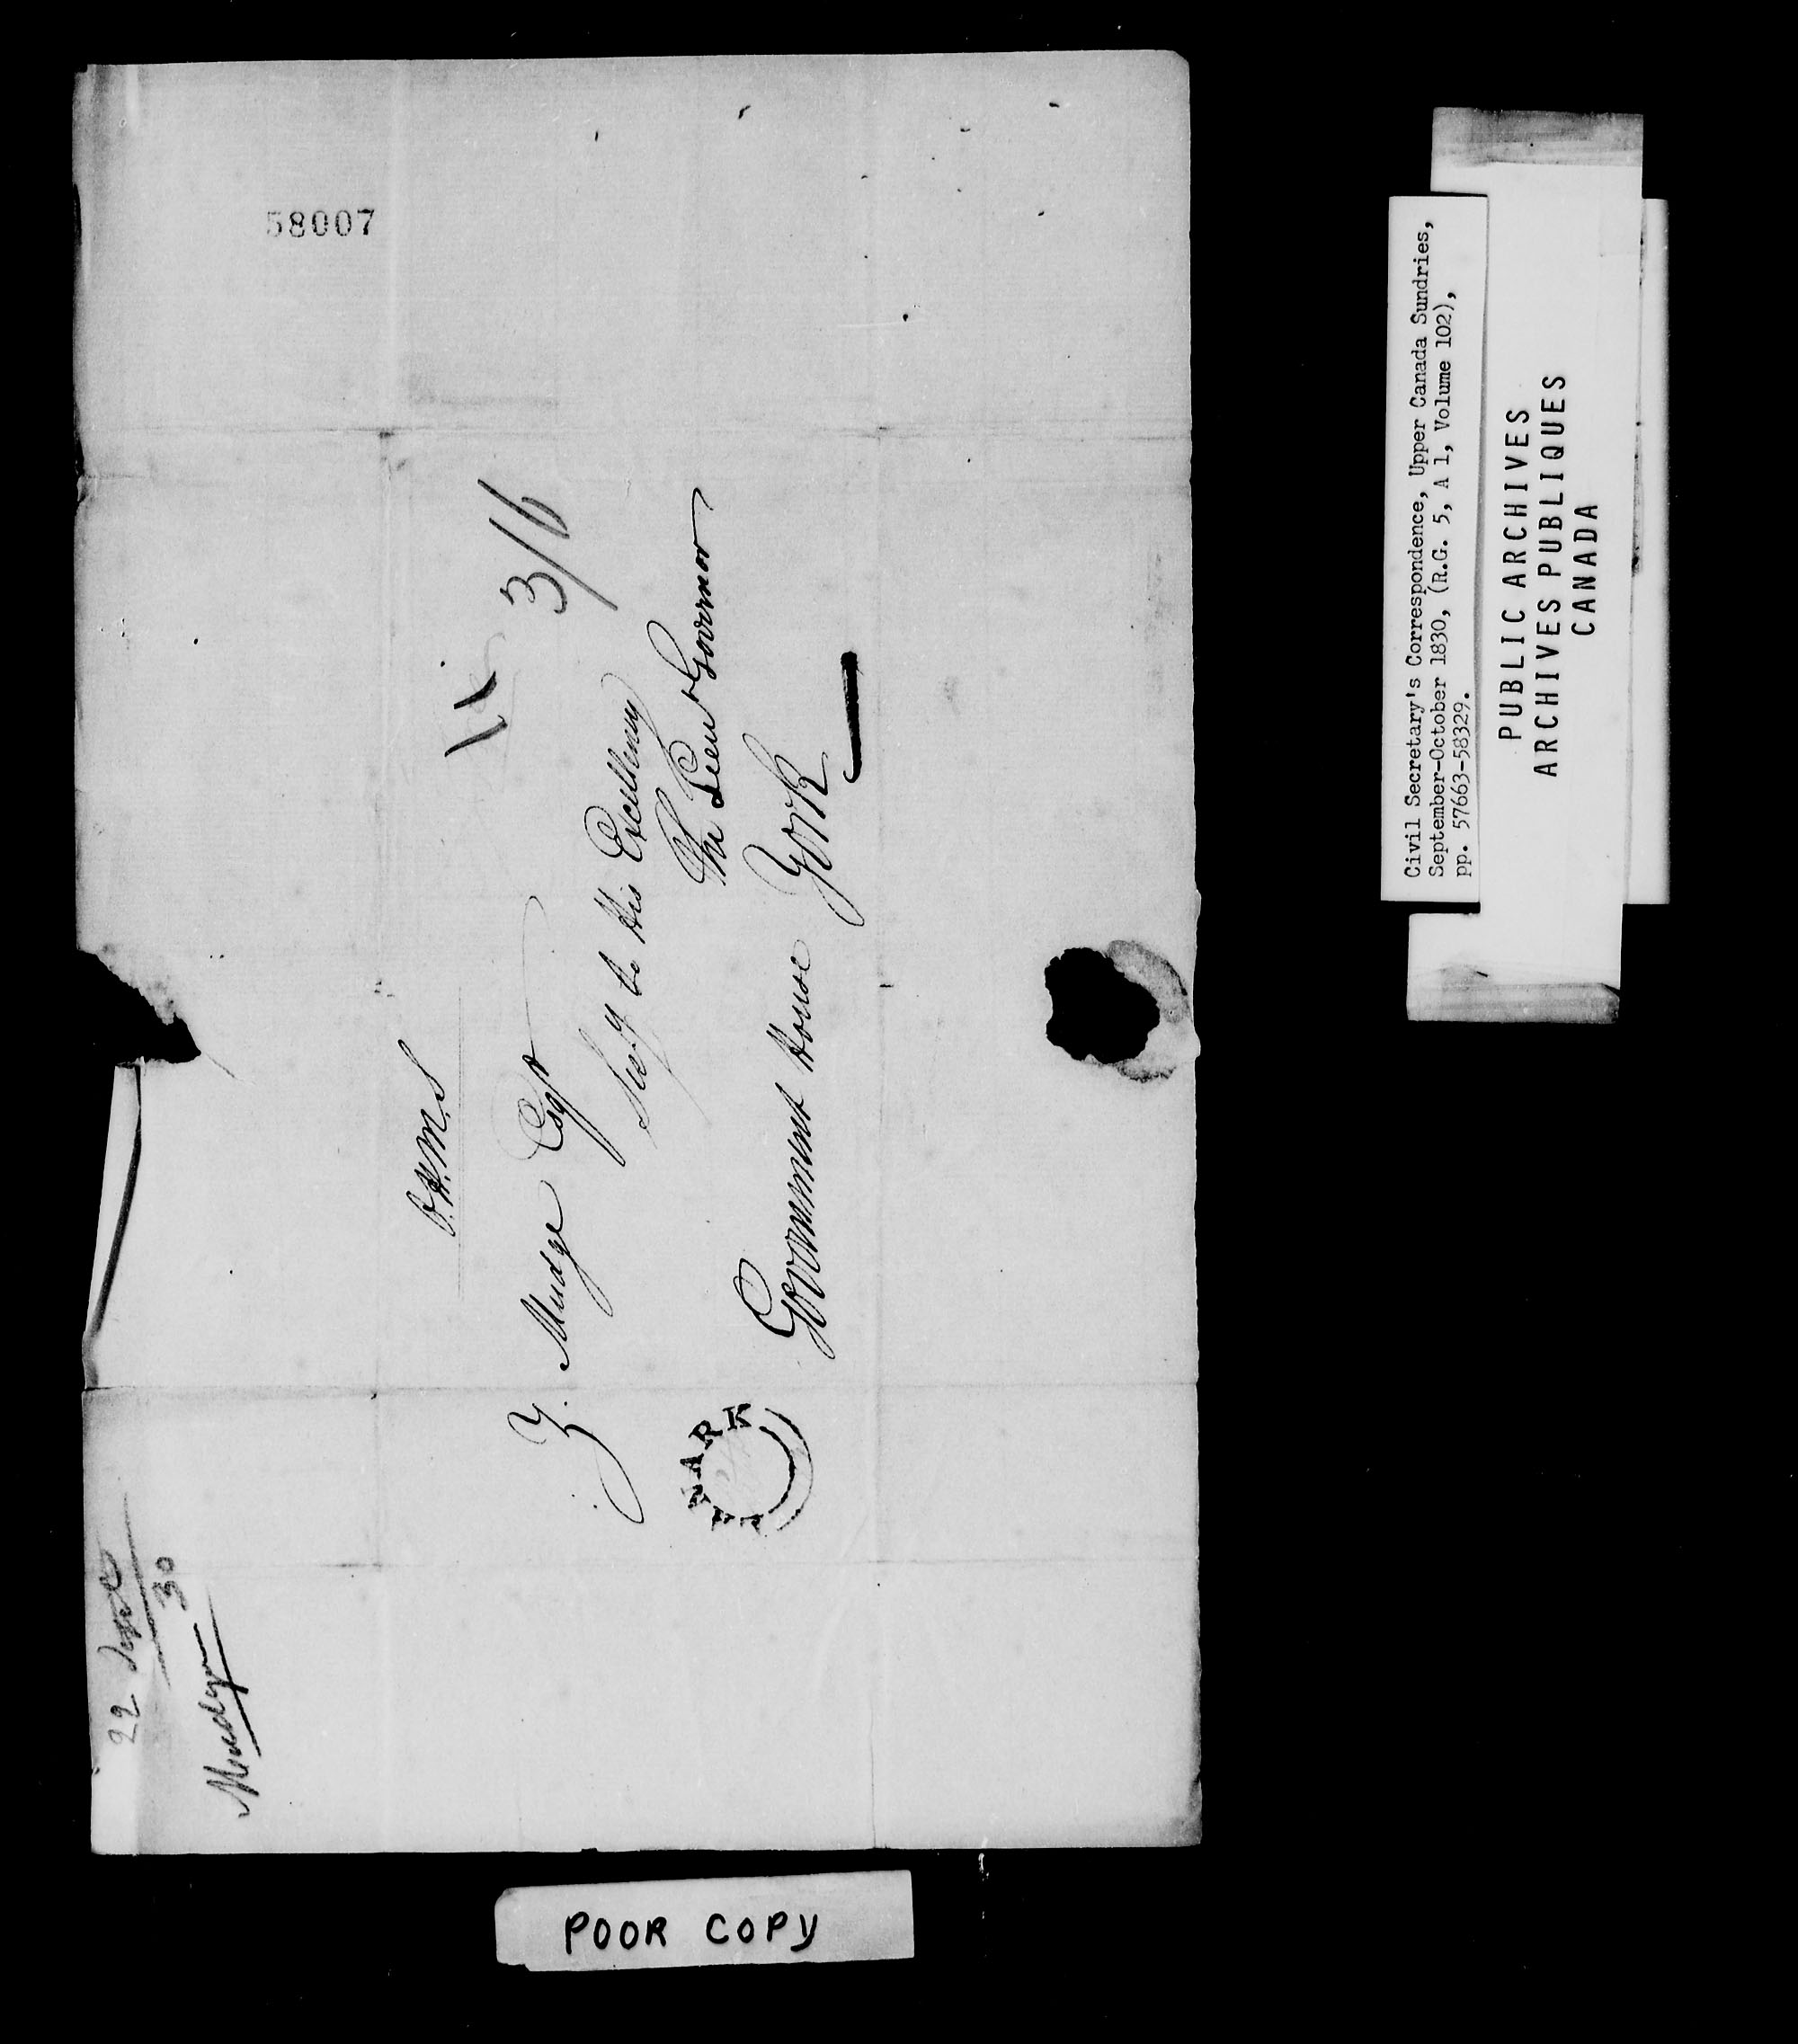 58007
O.H.M.S
3/6
Z. Mudge Esqr
Secy to His Excellency
The Lieut Governor
Government House York
22
30
Mudge
POOR COPY
Civil Secretary's Correspondence, Upper Canada Sundries,
September-October 1830, (R.G. 5, A 1, Volume 102),
pp. 57663-58329.
PUBLIC ARCHIVES
ARCHIVES PUBLIQUES
CANADA